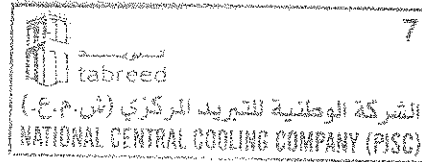 7
تبريد
tabreed
الشركة الوطنية للتبريد المركزي (ش.م.ع.)
NATIONAL CENTRAL COOLING COMPANY (PJSC)